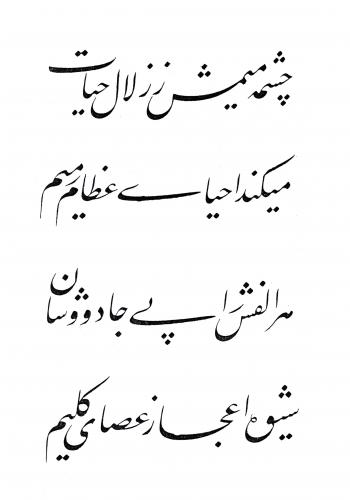 چشمه میمش ز زلال حیات
میکند احیای عظام رمیم
هر الفش را پی جادووشان
شیوه اعجاز عصای کلیم